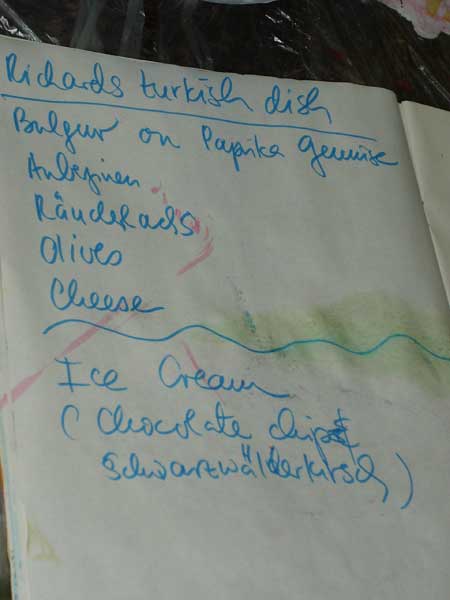 Richards turkish dish
Bulgur on Paprika gemüse
Auberjinen
Räucherlachs
Olives
Cheese
Ice Cream
( Chocolate chips
Schwarzwälderkirsch )